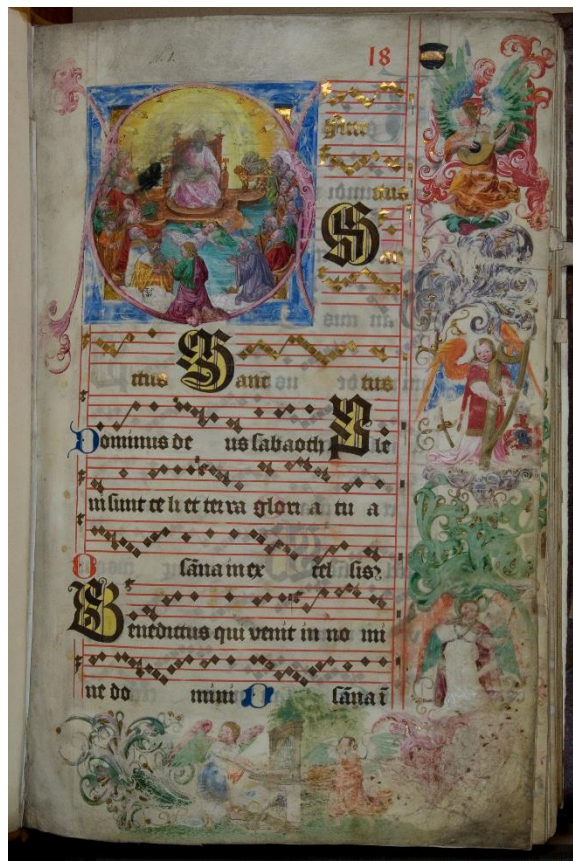 18
ctus Sanc tus
Dominus de us sabaoth Ple
ni sunt ce li et terra glori a tu a
O sāna in ex cel sis
Benedictus qui venit in no mi
ne do mini O sāna ī